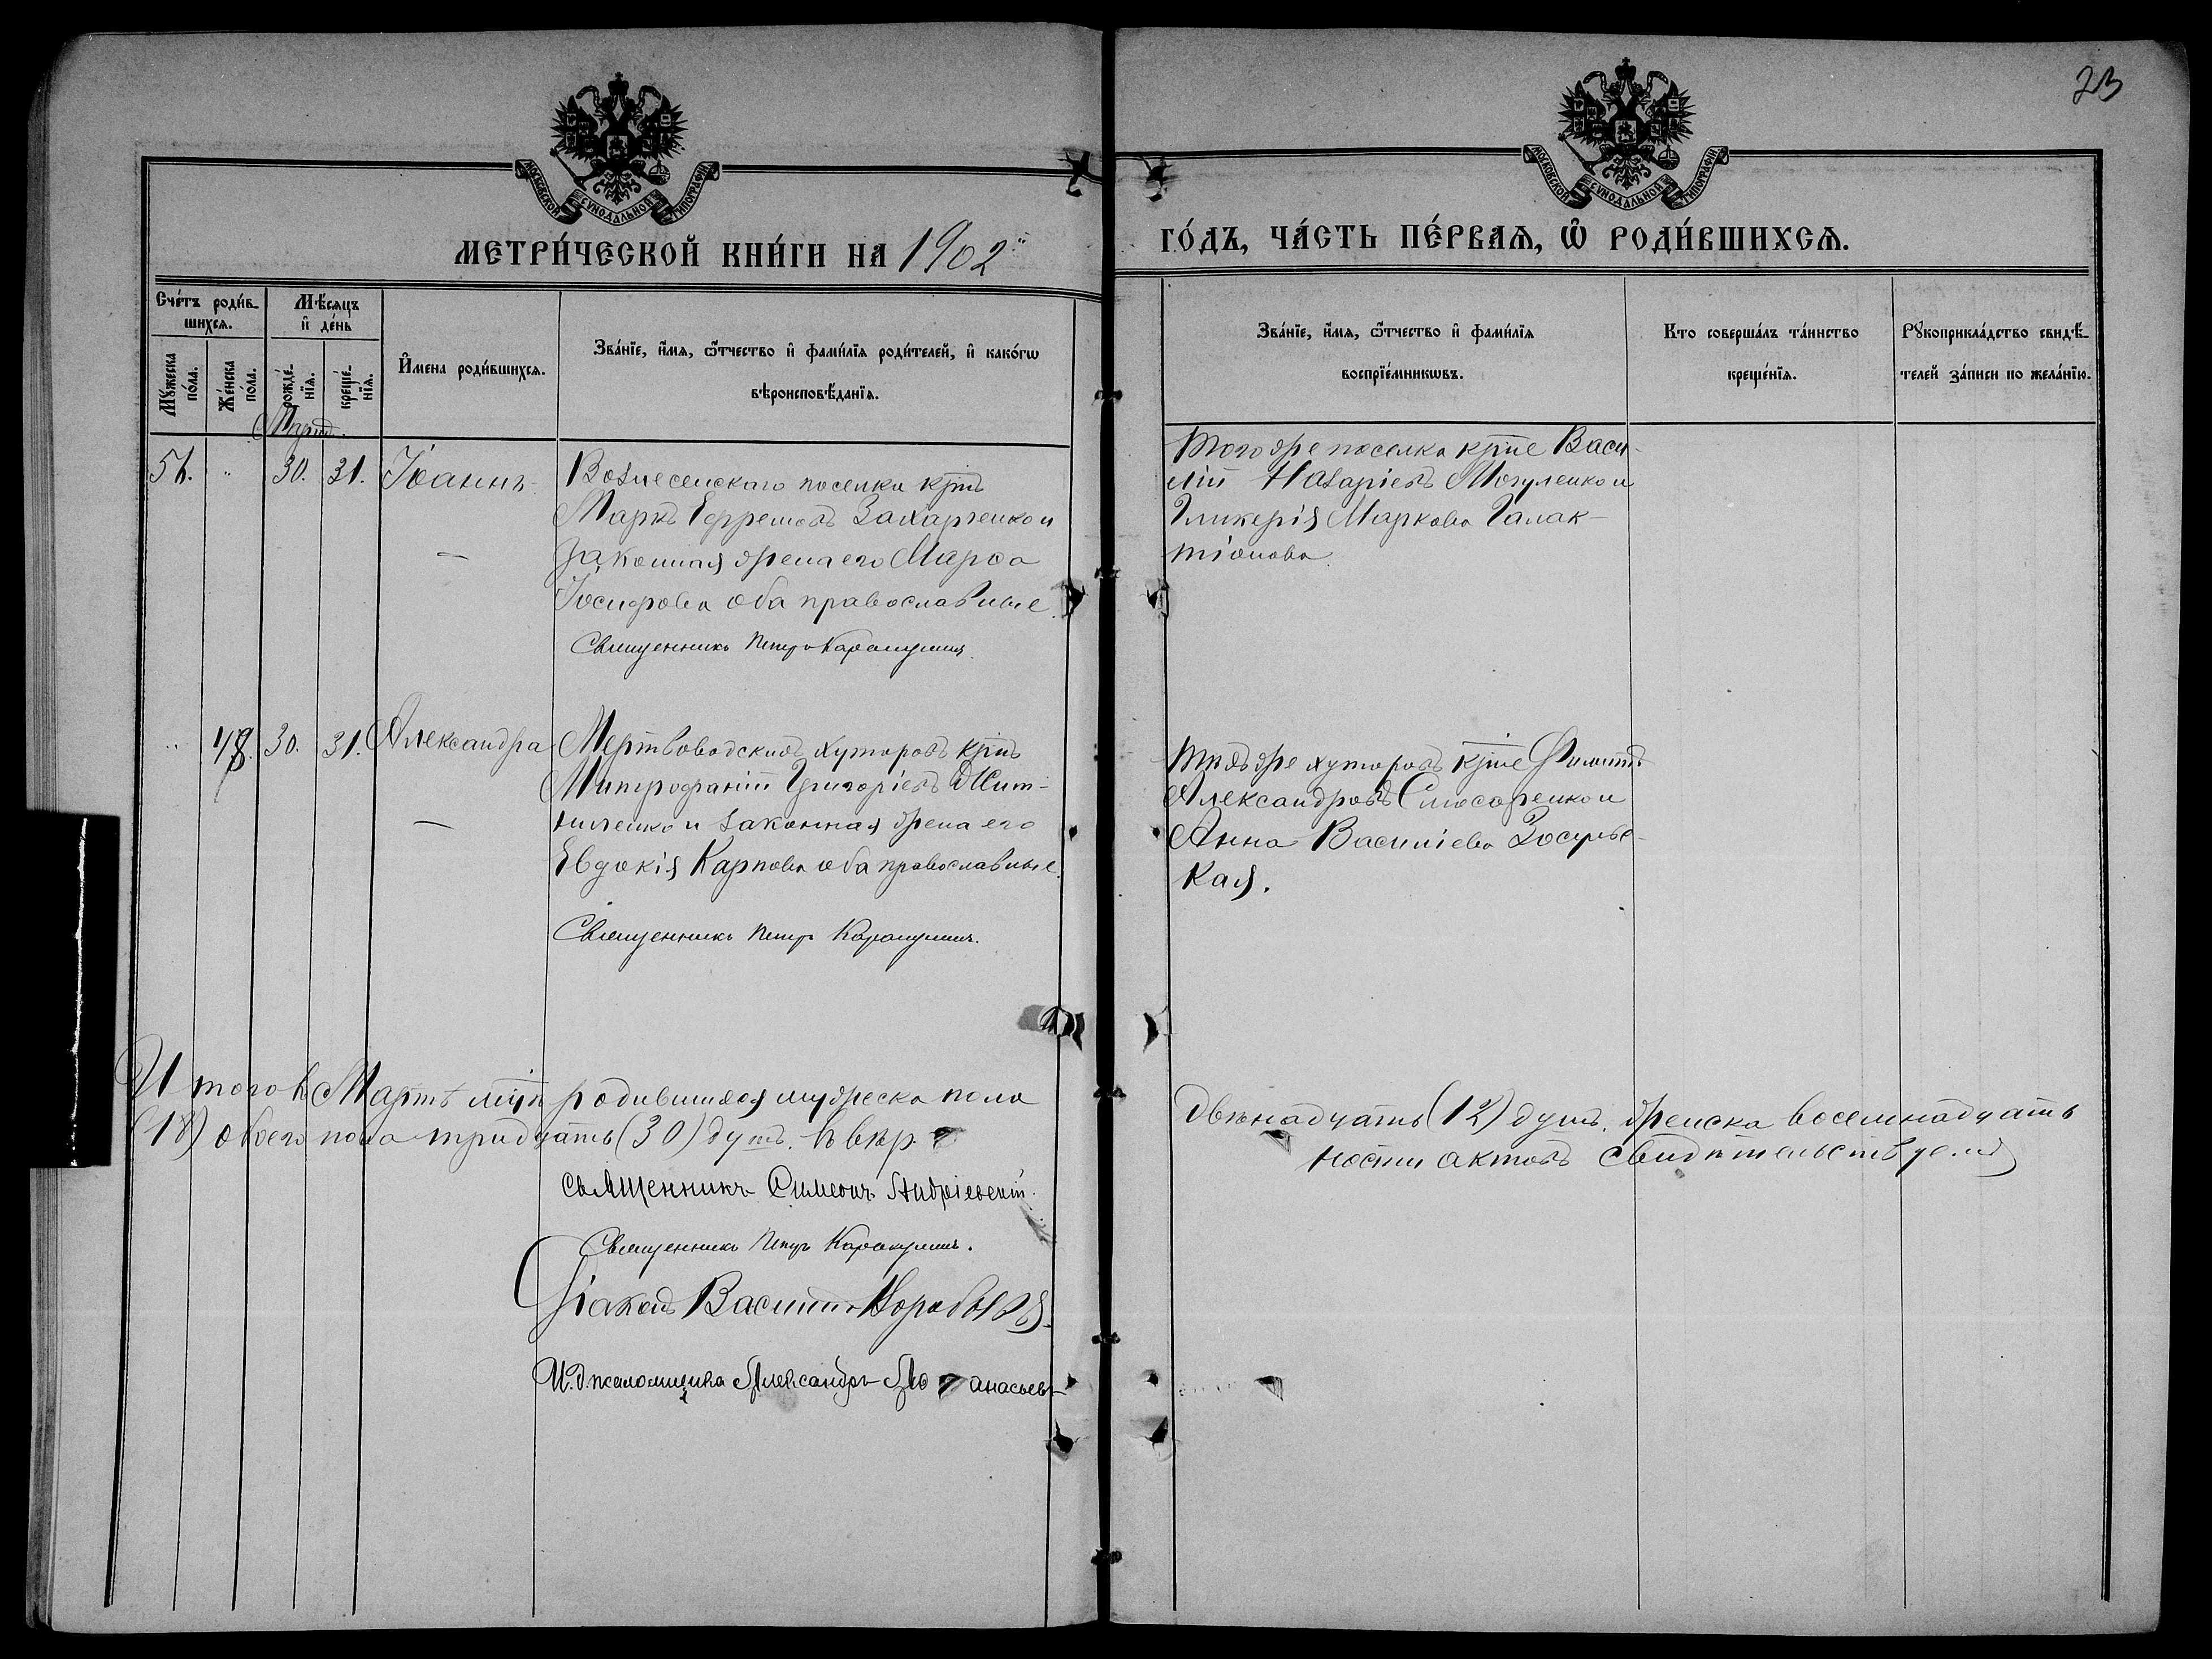 23
МОСКОВСКОЙ СУНОДАЛЬНОЙ ТИПОГРАФІИ
МОСКОВСКОЙ СУНОДАЛЬНОЙ ТИПОГРАФІИ
МЕТРИ́ЧЕСКОЙ КНИ́ГИ НА 1902й
ГО́ДЪ, ЧА́СТЬ ПЕ́РВАЯ, Ѡ РОДИ́ВШИХСЯ.
Сче́тъ роди́в-
шихся.
Мꙋ́жеска по́ла.
Же́нска по́ла.
Мѣ́сяцъ
и҆ де́нь
рожде́нїя.
креще́нїя.
И҆мена роди́вшихся.
Зва́нїе, и҆́мя, ѻ҆́тчество и҆ фами́лїя роди́телей, и҆ како́гѡ
вѣроисповѣ́данїя.
Зва́нїе, и҆́мя, ѻ҆́тчество и҆ фами́лїя
воспрїе́мникѡвъ.
Кто соверша́лъ та́инство
креще́нїя.
Рꙋкоприкла́дство свидѣ́-
телей за́писи по жела́нїю.
Мартъ.
51. " 30. 31. Іоаннъ
Вознесенскаго поселка крнъ
Маркъ Ефремовъ Захарченко и
законная жена его Марѳа
Іосифова оба православные.
Священникъ Петръ
Тогоже поселка крне Васи-
лій Назаріевъ Могуленко и
Гликерія Маркова Галак-
тіонова.
" 48. 30. 31. Александра
Мертвоводскихъ хуторовъ крнъ
Митрофаній Григоріевъ Жит-
ниченко и законная жена его
Евдокія Карпова оба православные.
Священникъ Петръ
Тѣхъ же хуторовъ крне Филиппъ
Александровъ Слюсаренко и
Анна Василіева Зосуль-
кая.
Итого въ Мартѣ мцѣ родившихся мужеска пола
двѣнадцать (12) душъ, женска восемнадцать
(18) обоего пола тридцать (30) душъ. Въ вѣр-
ности актовъ свидѣтельствуемъ
Священникъ Симеонъ Андріевскій.
Священникъ Петръ
Діаконъ Василій Воробьевъ
И. д. псаломщика Александръ